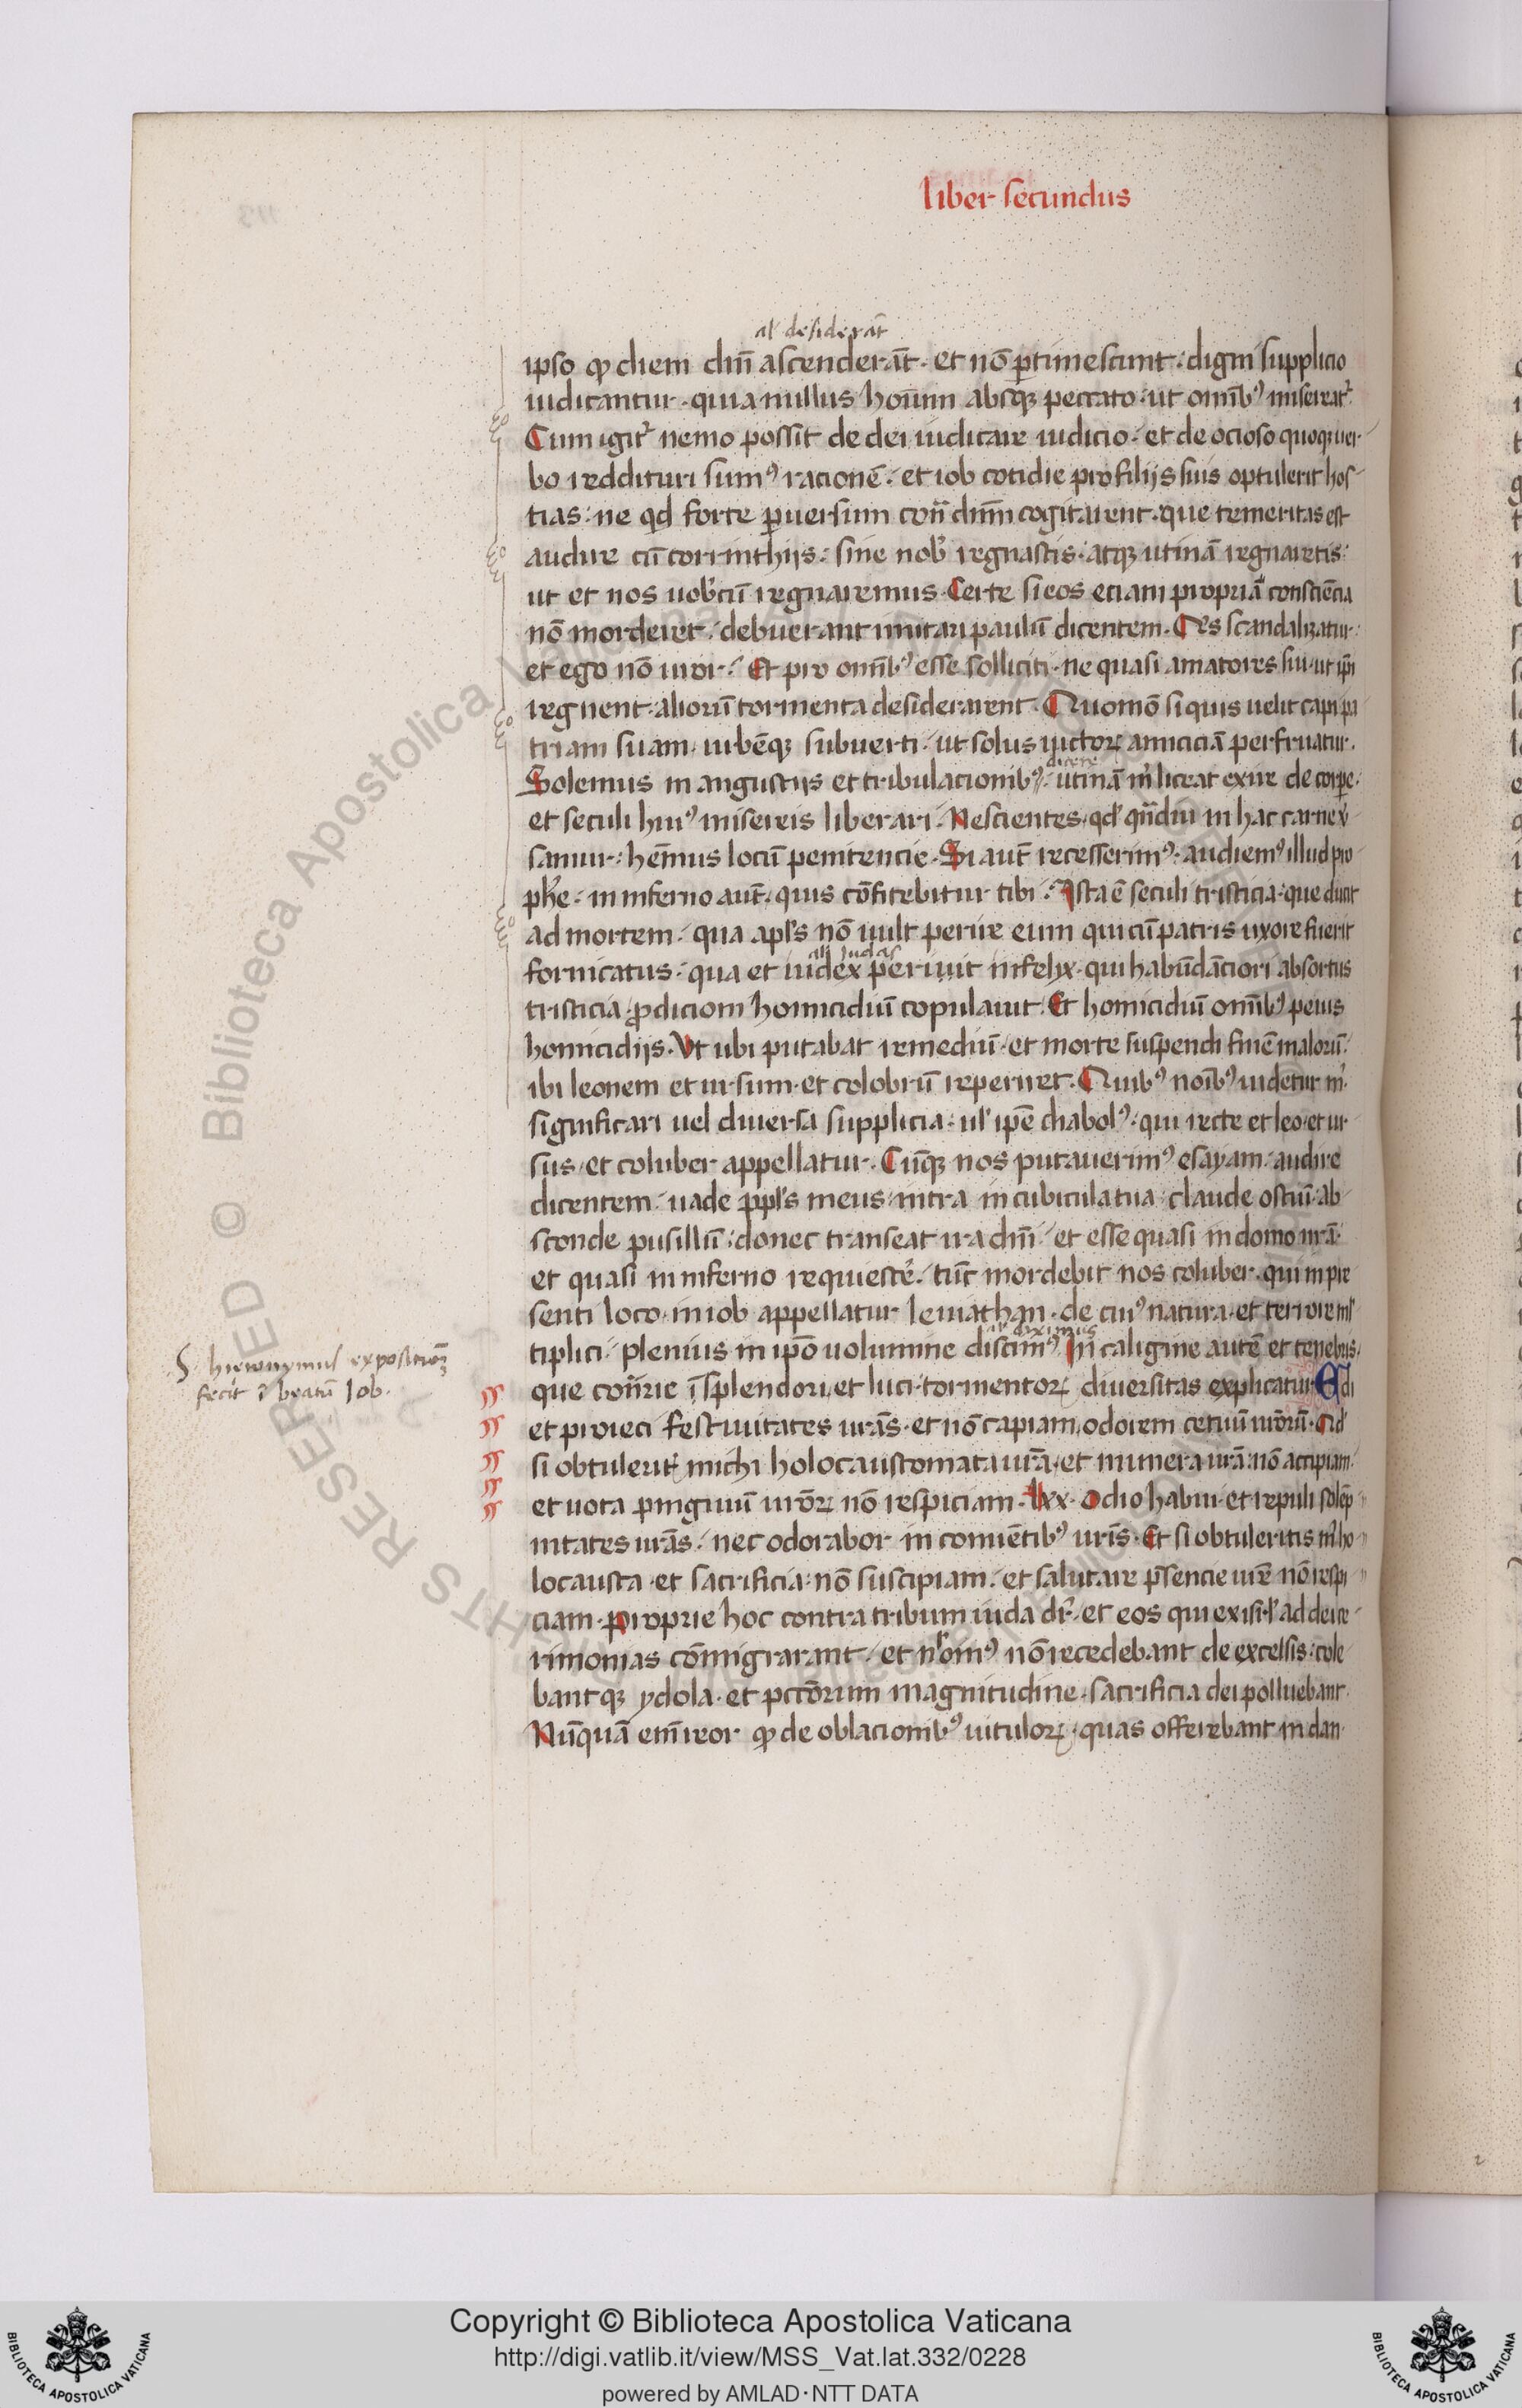 liber secundus
al desiderāt
ipso ꝙ diem dn̄i ascenderāt · et nō ꝑtimescunt : digni supplicio
iudicantur · quia nullus hoīum absqꝫ peccato · ut omībꝰ misereat᷑
Cum igit᷑ nemo possit de dei iudicare iudicio · et de ocioso quoqꝫ uer-
bo reddituri sumꝰ racionē · et iob cotidie pro filijs suis optulerit hos-
tias : ne qd forte ꝑuersum con̄ dn̄m cogitarent · que temeritas est
audire cū corinthijs : sine nob̄ regnastis · atqꝫ utinā regnaretis :
ut et nos uob̄cū regnaremus · Certe si eos etiam propria consciēcia
nō morderet · debuerant imitari paulū dicentem · Qis scandalizatur :
et ego nō uror · Et pro omībꝰ esse solliciti · ne quasi amatores sui · ut ip̄i
regnent · aliorū tormenta desiderarent · Quomō si quis uelit capi pa
triam suam · iubēqꝫ subuerti · ut solus uictoꝝ amiciciā perfruatur ·
dicere
Solemus in angustijs et tribulacionibꝰ · utinā m̄ liceat exire de corꝑe ·
et seculi huiꝰ misereis liberari · Nescientes · qd' qn̄diu in hac carne ỽ-
samur : hēmus locū penitencie · Si aut̄ recesserimꝰ · audiemꝰ illud pro
ph̄e · in inferno aut̄ · quis cōfitebitur tibi · Ista ē seculi tristicia · que ducit
ad mortem · qua apl's nō uult perire eum qui cū patris uxore fuerit
al iudas
fornicatus · qua et iudex periuit infelyx · qui habūdāciori absortus
tristicia · ꝓdicioni homicidiū copulauit · Et homicidiū omībꝰ peius
homicidijs · Vt ubi putabat remediū · et morte suspendi finē malorū :
ibi leonem et ursum · et colobrū reperiret · Quibꝰ noībꝰ uidetur m̄
significari uel diuersa supplicia · ul' ip̄e diabolꝰ · qui recte et leo · et ur-
sus · et coluber appellatur · Cūqꝫ nos putauerimꝰ esayam · audire
dicentem · uade ppl's meus · intra in cubicula tua · claude ostiū · ab-
sconde pusillū : donec transeat ira dn̄i · et esse quasi in domo nr̄a ·
et quasi in inferno requiescē · tūc mordebit nos coluber · qui in pre
senti loco · in iob appellatur leuiathan · de cuiꝰ natura · et terrore ml'
al diximus
tiplici · plenius in ip̄o uolumine discimꝰ · In caligine autē et tenebris ·
S. hieronymus expositionꝫ
fecit ī beatū Iob ·
que con̄rie ī splendori et luci · tormentoꝝ diuersitas explicatur · Odi
et proieci festiuitates ur̄as · et nō capiam odorem cetuū ur̄orū · Qd'
si obtulerit᷑ michi holocaustomata ur̄a · et munera ur̄a : nō accipiam ·
et uota pinguiū ur̄oꝝ nō respiciam · lxx · Odio habui · et repuli solēp-
nitates ur̄as · nec odorabor in conuētibꝰ ur̄is · Et si obtuleritis m̄ ho-
locausta · et sacrificia : nō suscipiam · et salutare p̄sencie ur̄e nō respi-
ciam · proprie hoc contra tribum iuda dr̄ · et eos qui ex isrl' ad dei ce-
rimonias cōmigrarant · et nichomīꝰ nō recedebant de excelsis : cole
bantqꝫ ydola · et pccōrum magnitudine · sacrificia dei polluebant ·
Nūquā em̄ reor ꝙ de oblacionibꝰ uituloꝝ · quas offerebant in dan ·
Copyright © Biblioteca Apostolica Vaticana
http://digi.vatlib.it/view/MSS_Vat.lat.332/0228
powered by AMLAD·NTT DATA